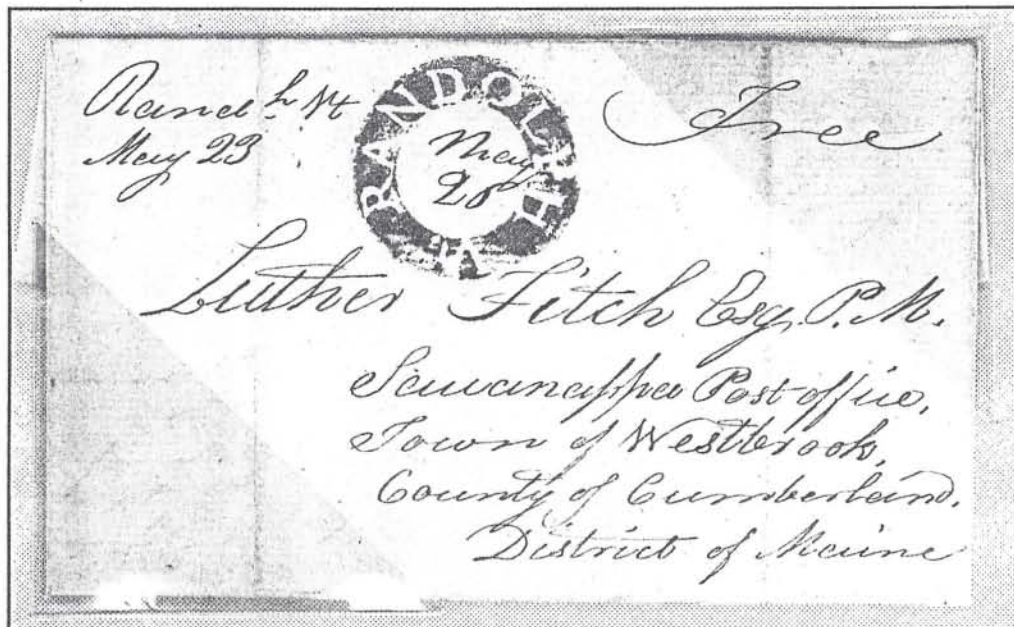 Rand h. Vt
May 23
RANDOLPH
Vt
May
Free
Luther Fitch Esq. P.M.
Post office,
Town of Westbrook,
County of Cumberland.
District of Maine